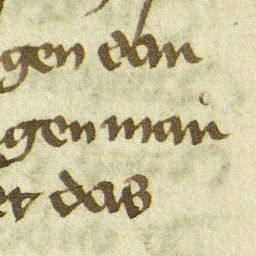 gen dan
gen man
er das